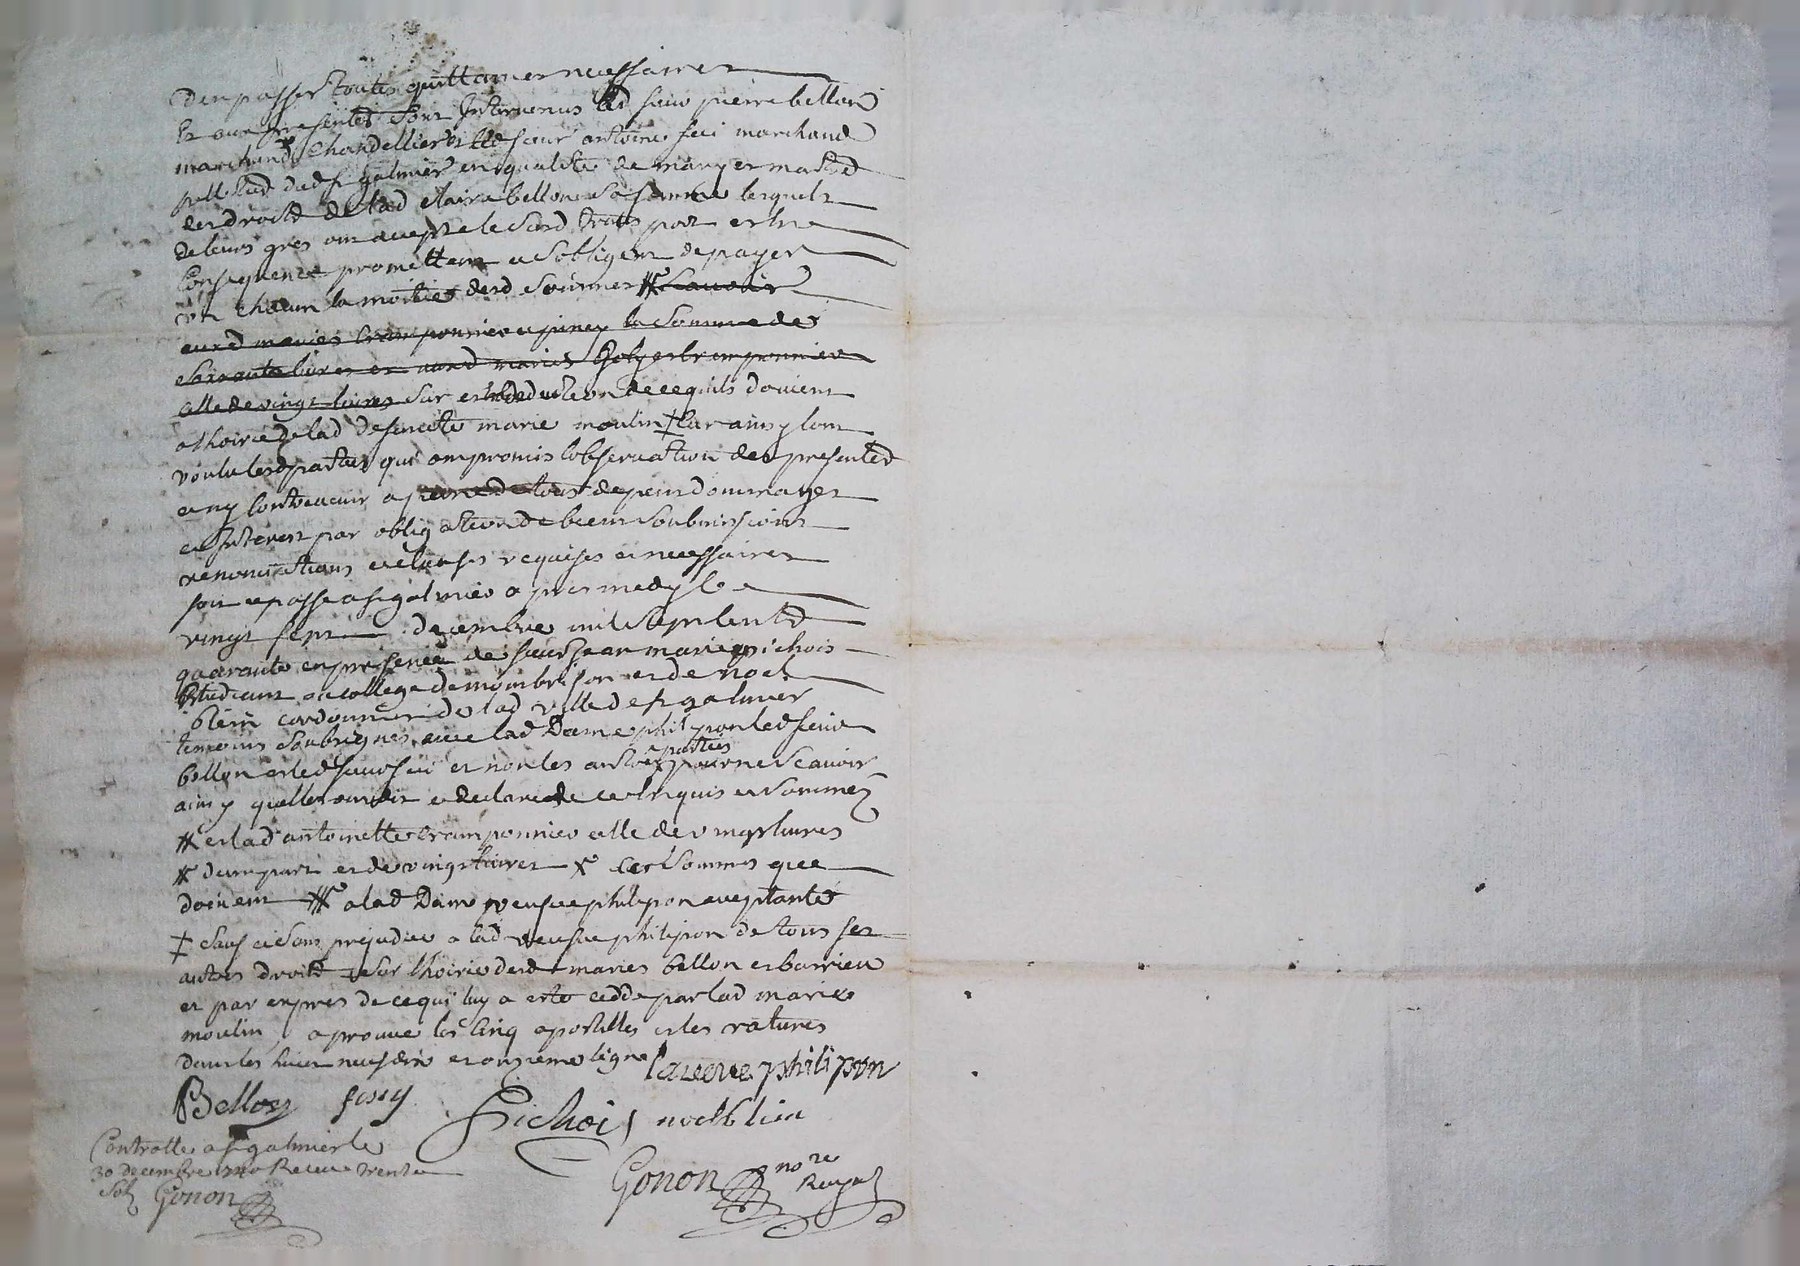 den passer toutes quittances necessaires
Et aux presentes sont Intervenus led sieur pierre bellon
marchand chandellier et led sieur antoine feci marchand
dud st galmier en qualite de mary et maitre
des droits de lad claire bellon sa femme lesquels
de leurs gres ont accepte le susd transport et en
Consequence promettent et sobligent de payer
un chacun la moitie desd sommes scavoir
auxd maries cramponnier et piney la somme de
soixante livres et auxd maries et cramponnier
celle de vingt livres sur et en deduction de ce quils doivent
a lhoirie de lad defuncte marie moulin car ainsy lont
voulu lesd parties qui ont promis lobservation des presentes
et ny contrevenir a peine de tous despens dommages
et Interest par obligation de biens soubmissions
renonciations et clauses requises et necessaires
fait et passe a st galmier apres medy le
vingt sept decembre mil sept cents
quarante en presence de sieur Jean marie pichois
Etudiant au college de montbrison et de noel
blein cordonnier de lad ville de st galmier
temoins soubsignes avec lad Dame philipon led sieur
bellon et led sieur feci et non les autres parties pour ne scavoir
ainsy quelles ont dit et declare de ce enquis et sommez
et lad antoinette cramponnier celle de vingt livres
dune part et de vingt livres Les sommes que
doivent a lad Dame veufve philipon acceptante
sauf et sans prejudice a lad veufve philipon de tous ses
autres droits sur lhoirie desd maries bellon et barrieu
et par expres de ce qui luy a este cedde par lad marie
moulin, aprouve les cinq apostilles et les ratures
dans les huit neuf dix et onzieme ligne la veuve philipon
Bellon fecy
Pichois noel blein
Controlle a st galmier le
30 decembre 1740 Receu trente
sols Gonon
Gonon nore Royal